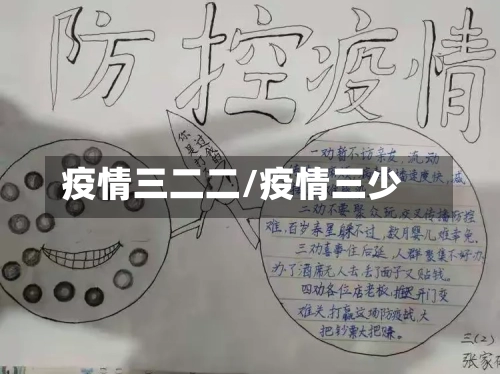 防控疫情
你是
疫情三二二/疫情三少
一劝暂不访亲友,流动
速度快,减
二劝不要聚众玩,交叉传播防控
难,百岁寿星躲不过,数月婴儿难幸免。
三劝喜事往后延,人群聚集不好办
办了酒席无人去,丢了面子又贴钱。
四劝各位店老板,推迟开门变
难关,打赢这场防疫战,大
把钞票大把赚。
三(2)
张家